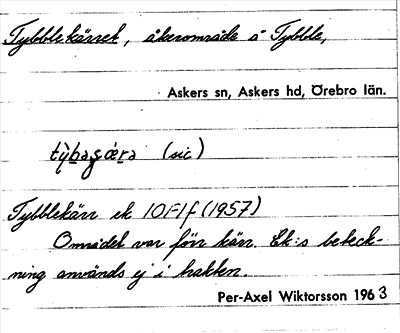 Tybblekärret, åkerområde å Tybble,
Askers sn, Askers hd, Örebro län.
(sic)
Tybblekärr ek 10F1f (1957)
Området var förr kärr. Ek:s beteck-
ning används ej i trakten.
Per-Axel Wiktorsson 1963